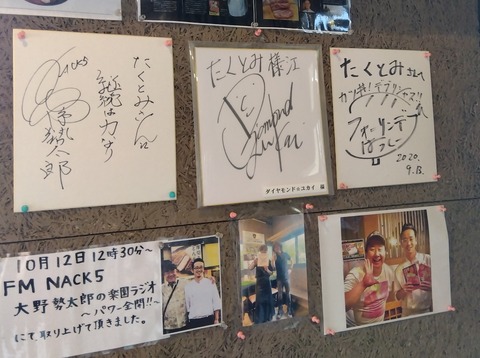 NACK5
大野勢太郎
たくとみさん江
継続は力なり
たくとみ様江
Diamond
Yukai
ダイヤモンド☆ユカイ 様
たくとみさんへ
カンザキデブリシャス!!
フォーリンデブ
はっしー
2020.
9.13.
10月12日12時30分~
FM NACK5
大野勢太郎の楽園ラジオ
~パワー全開!!~
にて取り上げて頂きました。